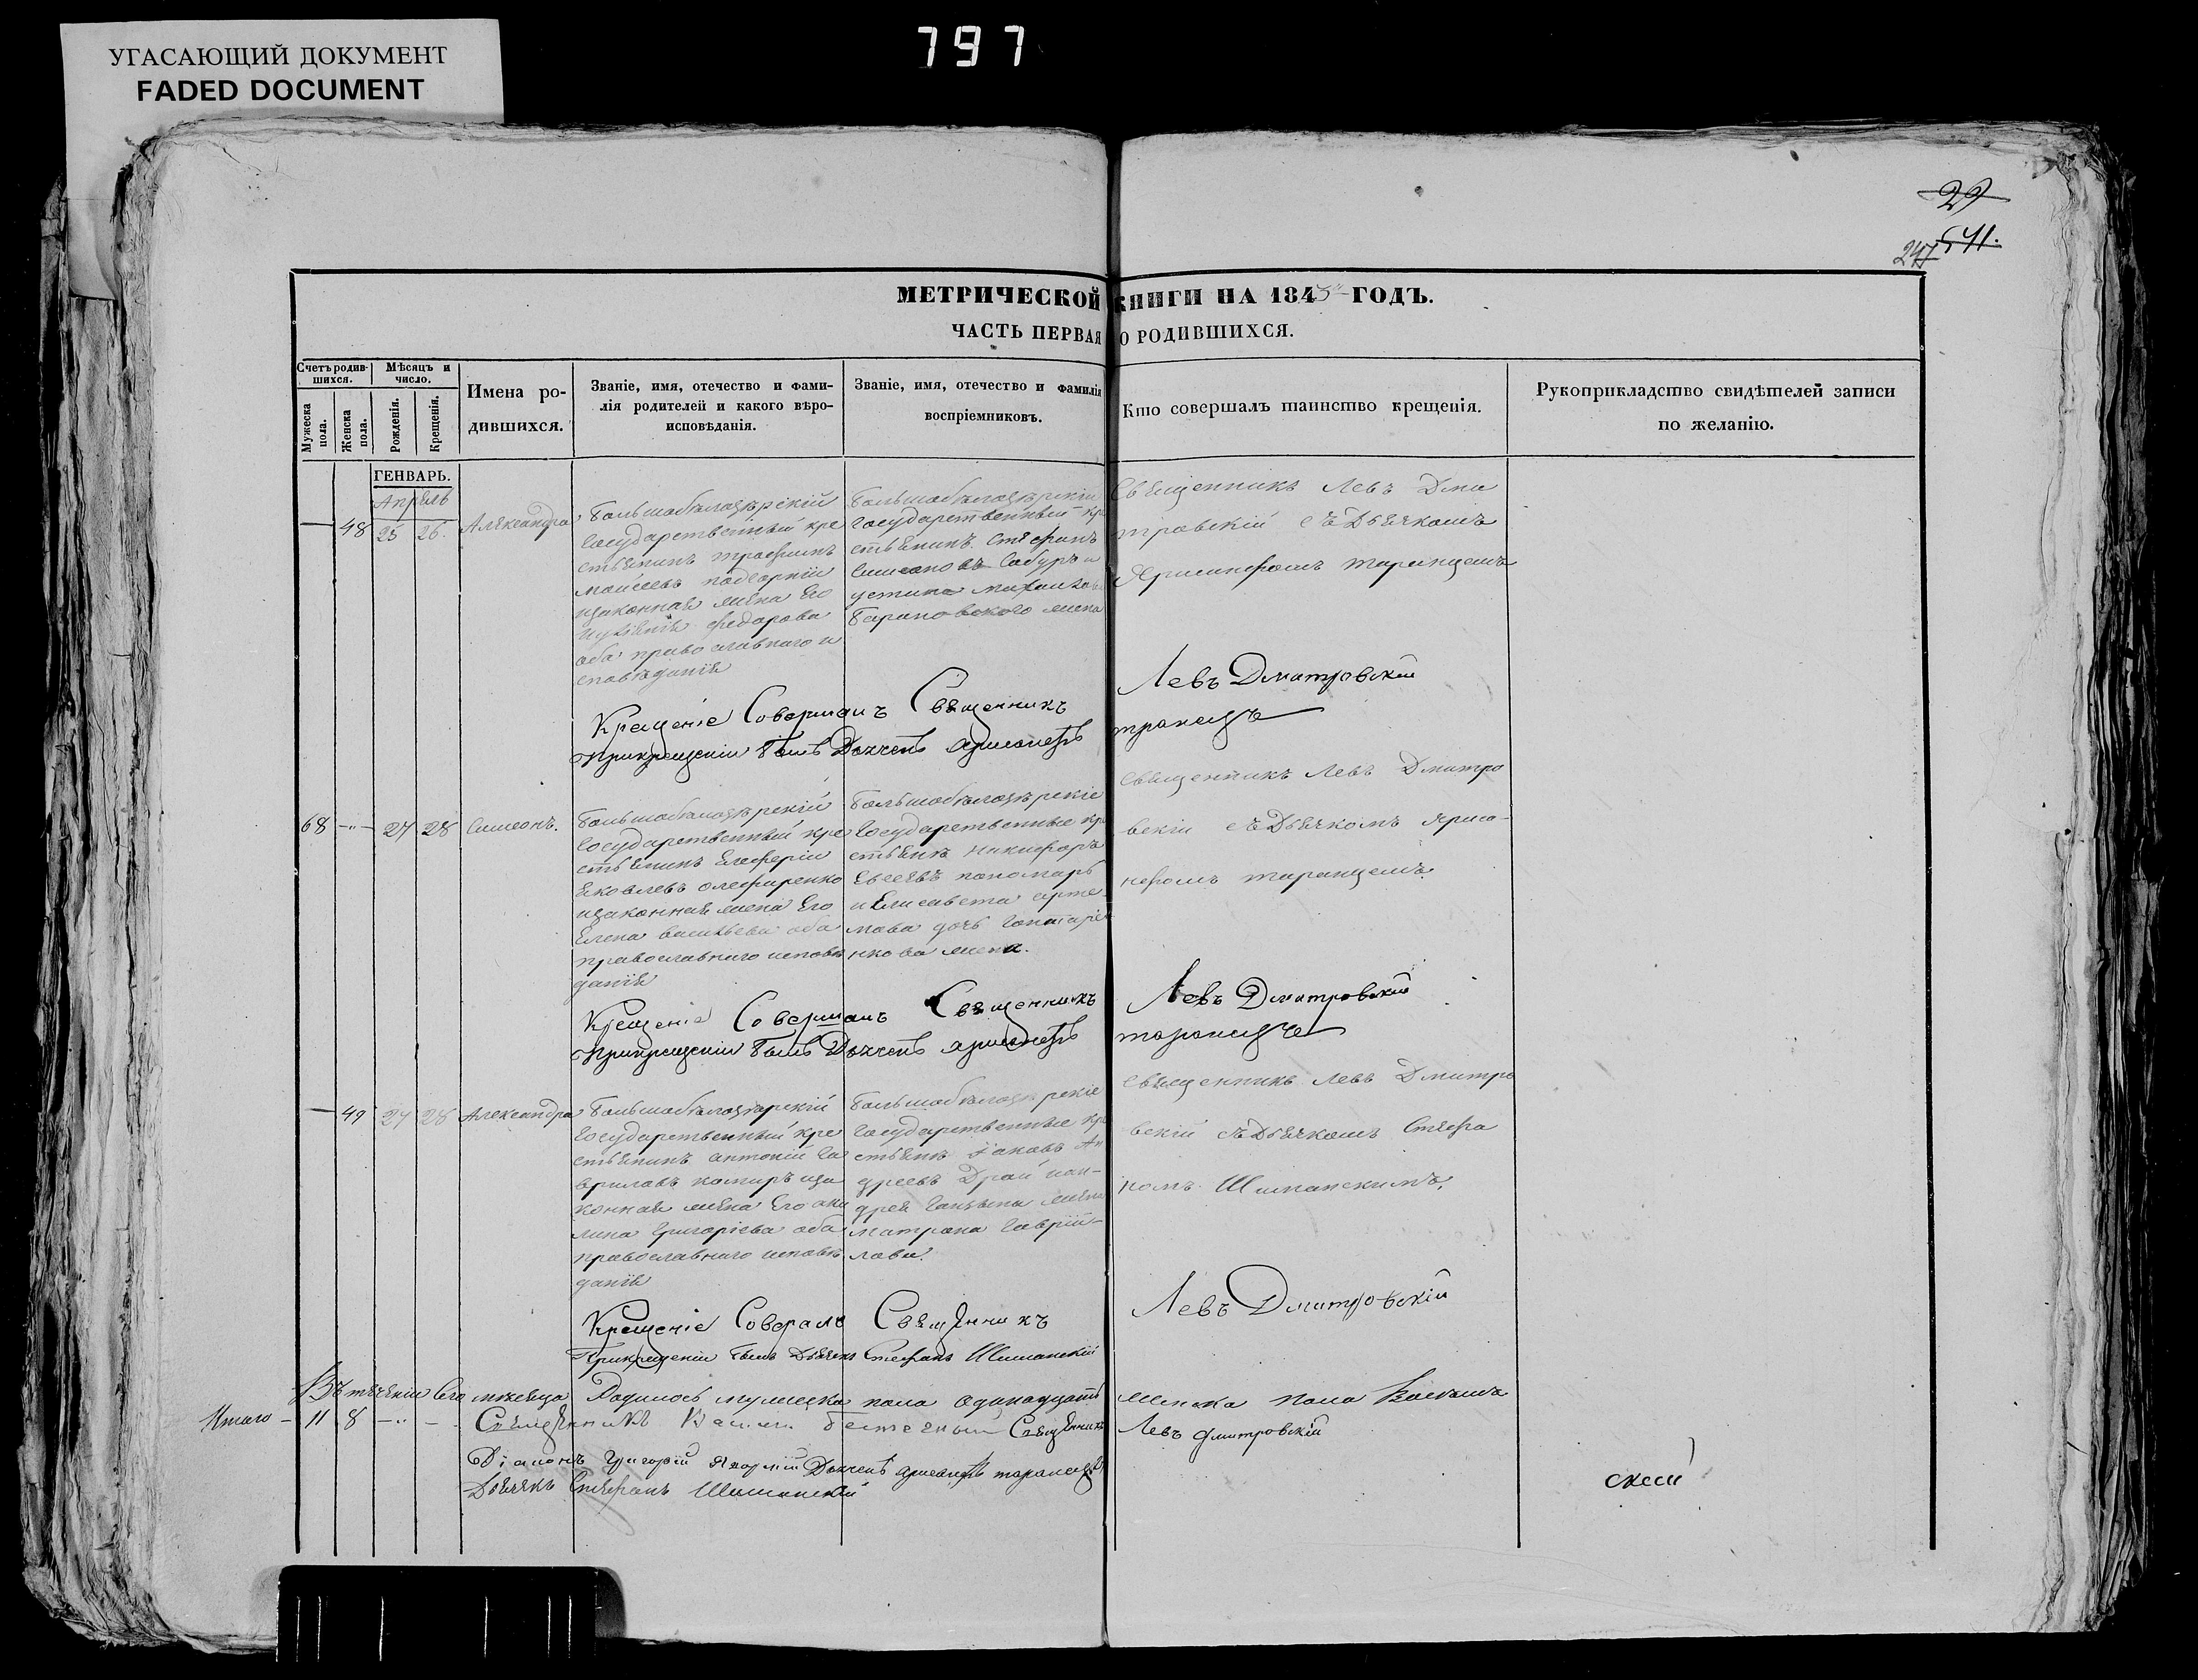 УГАСАЮЩИЙ ДОКУМЕНТ
FADED DOCUMENT
797
29
541.
247
МЕТРИЧЕСКОЙ КНИГИ НА 1843 ГОДЪ.
ЧАСТЬ ПЕРВАЯ О РОДИВШИХСЯ.
Счетъ родив-
шихся.
Мужеска пола.
Женска пола.
Мѣсяцъ и
число.
Рожденія.
Крещенія.
Имена ро-
дившихся.
Званіе, имя, отечество и фами-
лія родителей и какого вѣро-
исповѣданія.
Званіе, имя, отечество и фамилія
воспріемниковъ.
Кто совершалъ таинство крещенія.
Рукоприкладство свидѣтелей записи
по желанію.
ГЕНВАРЬ.
Апрель
48 25 26. Александра
Большобѣлозѣрскій
Государственный кре
стьянинъ трофимъ
моисеевъ подгорній
изаконная жена Его
Федорова
оба православнаго и
сповѣданія
Большобѣлозѣрскіи
Государственный кр
стьянинъ Стефанъ
Симеоновъ Собуръ и
устина
Барановского жена
Священникъ Левъ Дми
тровскій съ Дьячкомъ
таранцемъ
Крещеніе Совершалъ Священникъ Левъ Дмитровскій
Прикрещеніи былъ Дьячекъ таранецъ
68 27 28 Симеонъ.
Большобѣлозѣрскій
Государственный кре
стьянинъ Елеферіи
Яковлевъ олефиренко
изаконная жена Его
Елена васильева оба
православнаго исповѣ
данія
Большобѣлозѣрскіе
Государственные кр
стьяне никифоръ
Евсеевъ пономарь
и Елисавета арте-
мова дочь
нкова жена.
Священникъ Левъ Дмитро
вскіи съ Дьячкомъ
таранцемъ
Крещеніе Совершалъ Священникъ Левъ Дмитровскій
Прикрещеніи былъ Дьячекъ таранецъ
49 27 28 Александра
Большобѣлозѣрскій
Государственный кре
стьянинъ антоній га
вриловъ комиръ иза
конная жена Его аки
лина Григоріева оба
православнаго исповѣ
данія
Большобѣлозѣрскіе
Государственные кр
стьяне Іаковъ Ан
дреевъ Драй иан-
дрея жена
матрона Гаврій-
лова.
Священникъ Левъ Дмитро
вскій съ Дьячкомъ Стефа
номъ Шиманскимъ.
Крещеніе Совералъ Священникъ Левъ Дмитровскій
Прикрещеніи былъ Дьячекъ Стефанъ Шиманскій
Въ теченіи Сего месяца Родилось мужеска пола одинадцать женска пола Восемь
Итого 11 8
Священникъ Священникъ Левъ Дмитровскій
Діаконъ Григорій Дьячекъ таранецъ
Дьячекъ Стефанъ Шиманскій